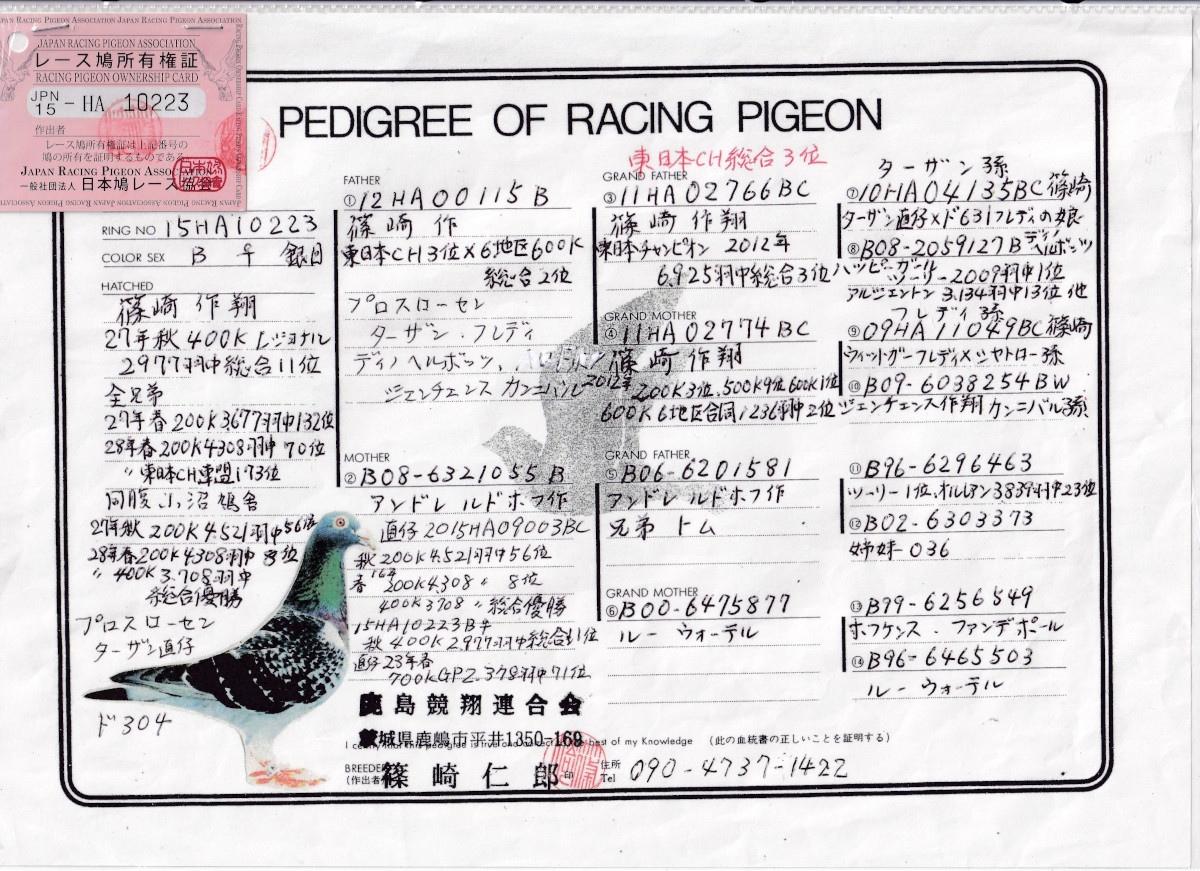 JAPAN RACING PIGEON ASSOCIATION JAPAN RACING PIGEON ASSOCIATION
JAPAN RACING PIGEON ASSOCIATION
レース鳩所有権証
RACING PIGEON OWNERSHIP CARD
JPN 15 - HA 10223
作出者
レース鳩所有権証は上記番号の
鳩の所有を証明するものである
JAPAN RACING PIGEON ASSOCIATION
一般社団法人 日本鳩レース協会
PEDIGREE OF RACING PIGEON
RING NO 15HA10223
COLOR SEX B ♀ 銀目
HATCHED
篠崎 作翔
27年秋 400K レジョナル
2977羽中総合11位
全兄弟
27年春200K3,677羽中132位
28年春200K4308羽中 70位
〃 東日本CH連盟173位
同腹 小沼鳩舎
27年秋 200K4.521羽中56位
28年春200K4308羽中 8位
〃 400K 3.708羽中
総合優勝
プロスローセン
ターザン直仔
ド304
FATHER
①12HA00115 B
篠崎 作
東日本CH3位×6地区600K
総合2位
プロスローセン
ターザン.フレディ
ディノヘルボッツ.
ジェンチェンス カンニバル
MOTHER
②B08-6321055 B
アンドレ ルドホフ作
直仔 2015HA09003BC
秋200K4.521羽中56位
春 200K4308 〃 8位
400K3708 〃 総合優勝
15HA10223B♀
秋 400K2977羽中総合11位
直仔23年春
700KGP2.378羽中71位
東日本CH総合3位
GRAND FATHER
③11HA02766BC
篠崎 作翔
東日本チャンピオン 2012年
6.925羽中総合3位
GRAND MOTHER
④11HA02774BC
篠崎作翔
2012年 200K3位.500K9位 600K1位
600K6地区合同1236羽中2位
GRAND FATHER
⑤B06-6201581
アンドレ ルドホフ作
兄弟 トム
GRAND MOTHER
⑥B00-6475877
ルー ウォーテル
ターザン孫
⑦10HA04135BC 篠崎
ターザン直仔×ド631フレディの娘
⑧B08-2059127B ディノヘルボッツ
ハッピーガール
ツーリー2009羽中1位
アルジェントン3.134羽中13位 他
フレディ孫
⑨09HA11049BC篠崎
ウィットガーフレディ×シャトロー孫
⑩B09-6038254BW
ジェンチェンス作翔カンニバル孫
⑪B96-6296463
ツーリー1位.オルレアン3839羽中23位
⑫B02-6303373
姉妹-036
⑬B99-6256549
ホフケンス.ファンデポール
⑭B96-6465503
ルー ウォーテル
鹿島競翔連合会
茨城県鹿嶋市平井1350-169
I certify that this pedigree is true and best of my Knowledge (此の血統書の正しいことを証明する)
BREEDER
(作出者)
篠崎仁郎 印
住所
Tel 090-4737-1422